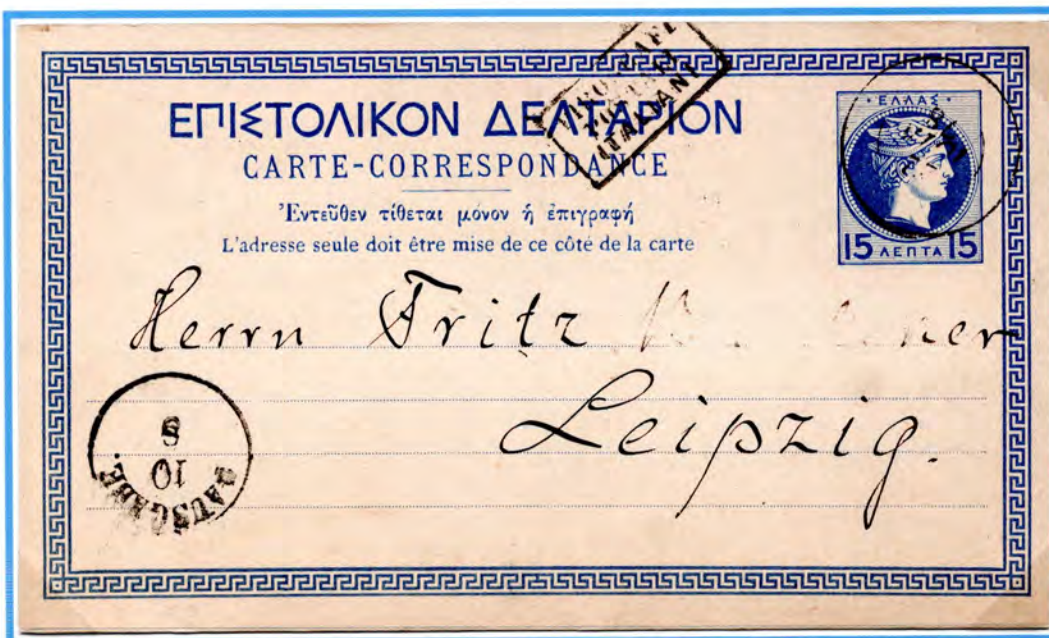 ΕΠΙΣΤΟΛΙΚΟΝ ΔΕΛΤΑΡΙΟΝ
CARTE-CORRESPONDANCE
Ἐντεῦθεν τίθεται μόνον ἡ ἐπιγραφή
L'adresse seule doit être mise de ce côté de la carte
PIROSCAFI
POSTALI
ITALIANI
ΕΛΛΑΣ
15 ΛΕΠΤΑ 15
Herrn Fritz
Leipzig.
S
10
AUSGABE.